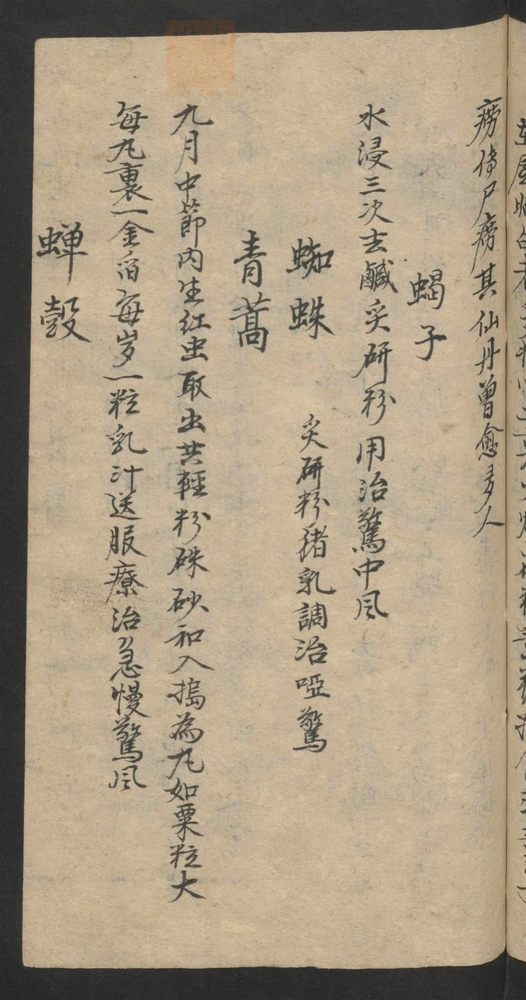 癆傳尸癆其仙丹曾愈多人
蝎子
水浸三次去鹹炙研粉用治驚中风
蜘蛛
炙研粉猪乳調治啞驚
青蒿
九月中節内生红虫取出共輕粉硃砂和入搗為九如粟粒大
每九裹一金泊每岁一粒乳汁送服療治急慢驚风
蝉殼